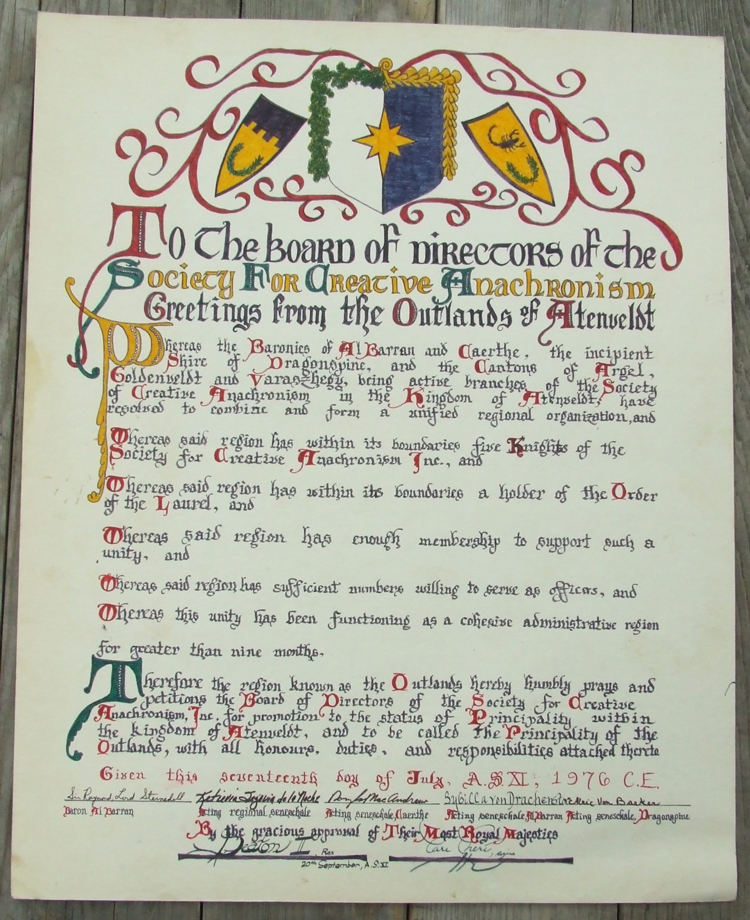 To the Board of Directors of the
Society For Creative Anachronism
Greetings from the Outlands of Atenveldt
Whereas the Baronies of Al Barran and Caerthe, the incipient
Shire of Dragonspine, and the Cantons of Argel,
Goldenveldt and Varaszhegy, being active branches of the Society
of Creative Anachronism in the Kingdom of Atenveldt, have
resolved to combine and form a unified regional organization, and
Whereas said region has within its boundaries five Knights of the
Society for Creative Anachronism Inc., and
Whereas said region has within its boundaries a holder of the Order
of the Laurel, and
Whereas said region has enough membership to support such a
unity, and
Whereas said region has sufficient numbers willing to serve as officers, and
Whereas this unity has been functioning as a cohesive administrative region
for greater than nine months.
Therefore the region known as the Outlands hereby humbly prays and
petitions the Board of Directors of the Society for Creative
Anachronism, Inc. for promotion to the status of Principality within
the kingdom of Atenveldt, and to be called the Principality of the
Outlands, with all honours, duties, and responsibilities attached thereto
Given this seventeenth day of July, A.S. XI, 1976 C.E.
Sir Raymond Lord
Baron Al Barran Acting regional seneschale Acting seneschale, Caerthe Acting seneschale, Al Barran Acting seneschale, Dragonspine
By the gracious approval of Their Most Royal Majesties
Deaton II, Rex
20th September, A.S. XI